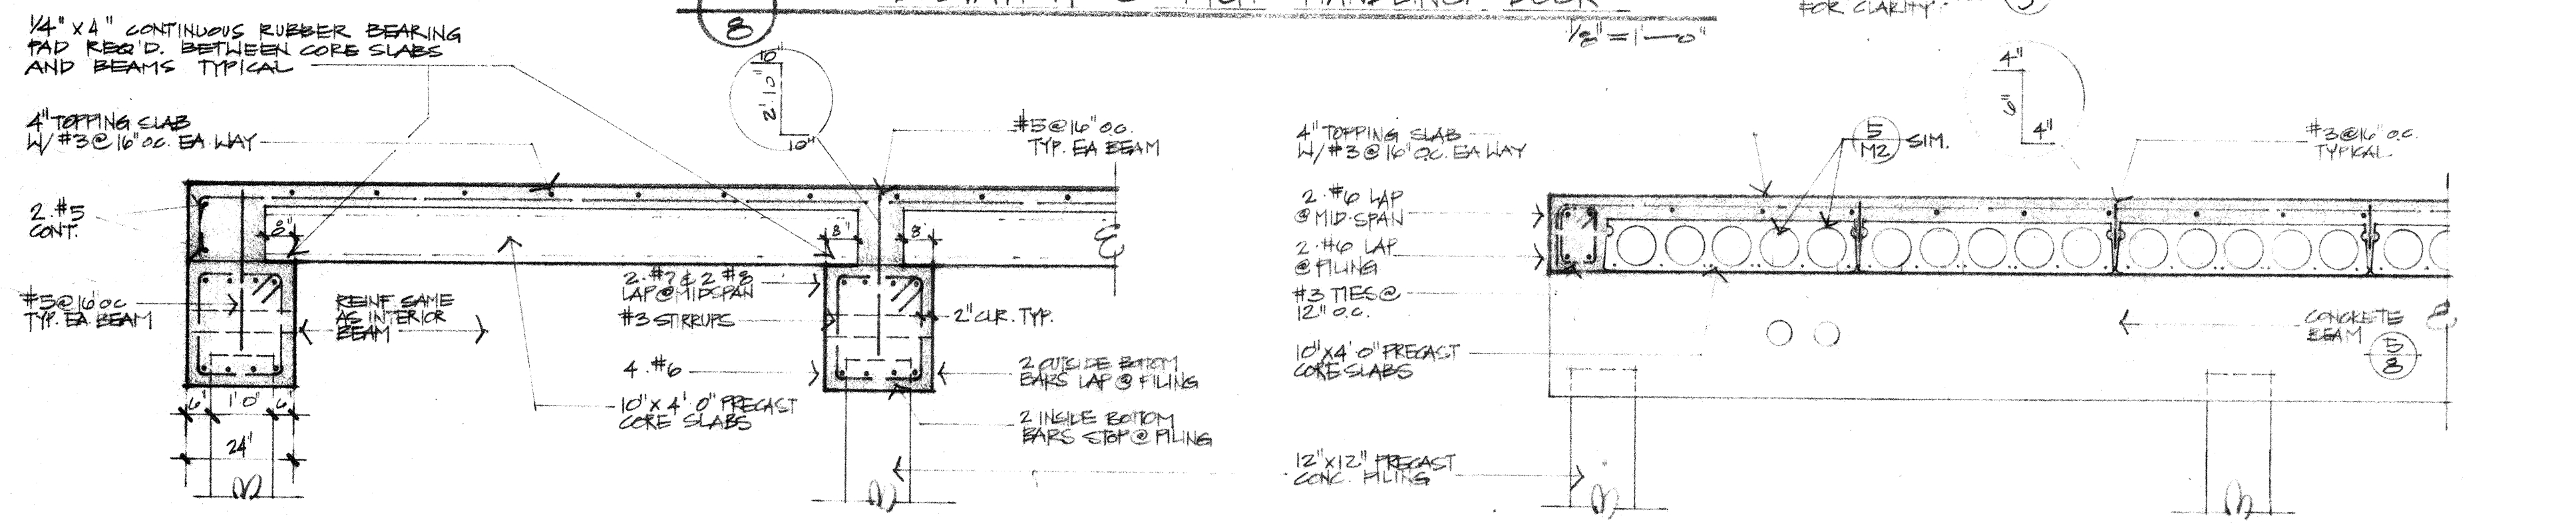 8
1/8"=1'-0"
FOR CLARITY.
1/4" X 4" CONTINUOUS RUBBER BEARING
PAD REQ'D. BETWEEN CORE SLABS
AND BEAMS TYPICAL
4" TOPPING SLAB
W/ #3 @ 16" O.C. EA WAY
2 · #5
CONT.
#5 @ 16" O.C.
TYP. EA BEAM
REINF. SAME
AS INTERIOR
BEAM
8"
6" 1'0" 6"
24"
10"
2'10"
10"
#5 @ 16" O.C.
TYP. EA BEAM
8"
8"
2 · #7 & 2 #8
LAP @ MIDSPAN
#3 STIRRUPS
4 · #6
10" X 4'0" PRECAST
CORE SLABS
2" CLR. TYP.
2 OUTSIDE BOTTOM
BARS LAP @ PILING
2 INSIDE BOTTOM
BARS STOP @ PILING
4" TOPPING SLAB
W/ #3 @ 16" O.C. EA WAY
2 · #6 LAP
@ MID-SPAN
2 · #6 LAP
@ PILING
#3 TIES @
12" O.C.
10" X 4'0" PRECAST
CORE SLABS
12" X 12" PRECAST
CONC. PILING
5
M2
SIM.
4"
6"
4"
#3 @ 16" O.C.
TYPICAL
CONCRETE
BEAM
5
8